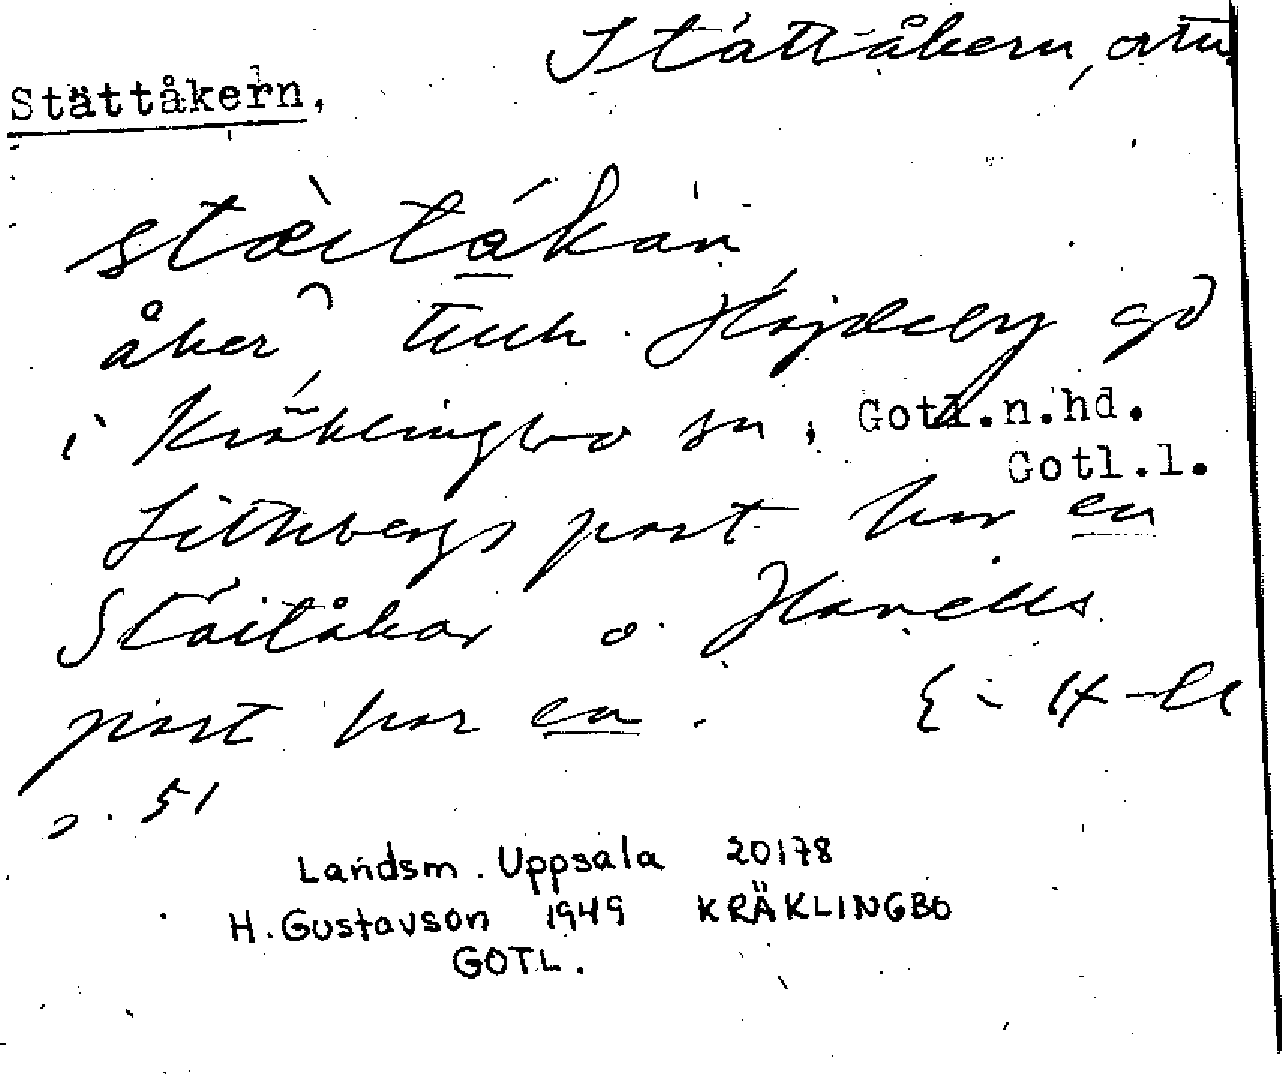 Stättåkern, ortn
Stättåkern,
stæitåkan
åker tillh. Hajdeby gd
i Kräklingbo sn, Gotl.n.hd.
Gotl.l.
Lithbergs part har en
Stäitåkar o. Havells
part har en.
s. 51
Landsm. Uppsala 20178
H. Gustavson 1949 KRÄKLINGBO
GOTL.